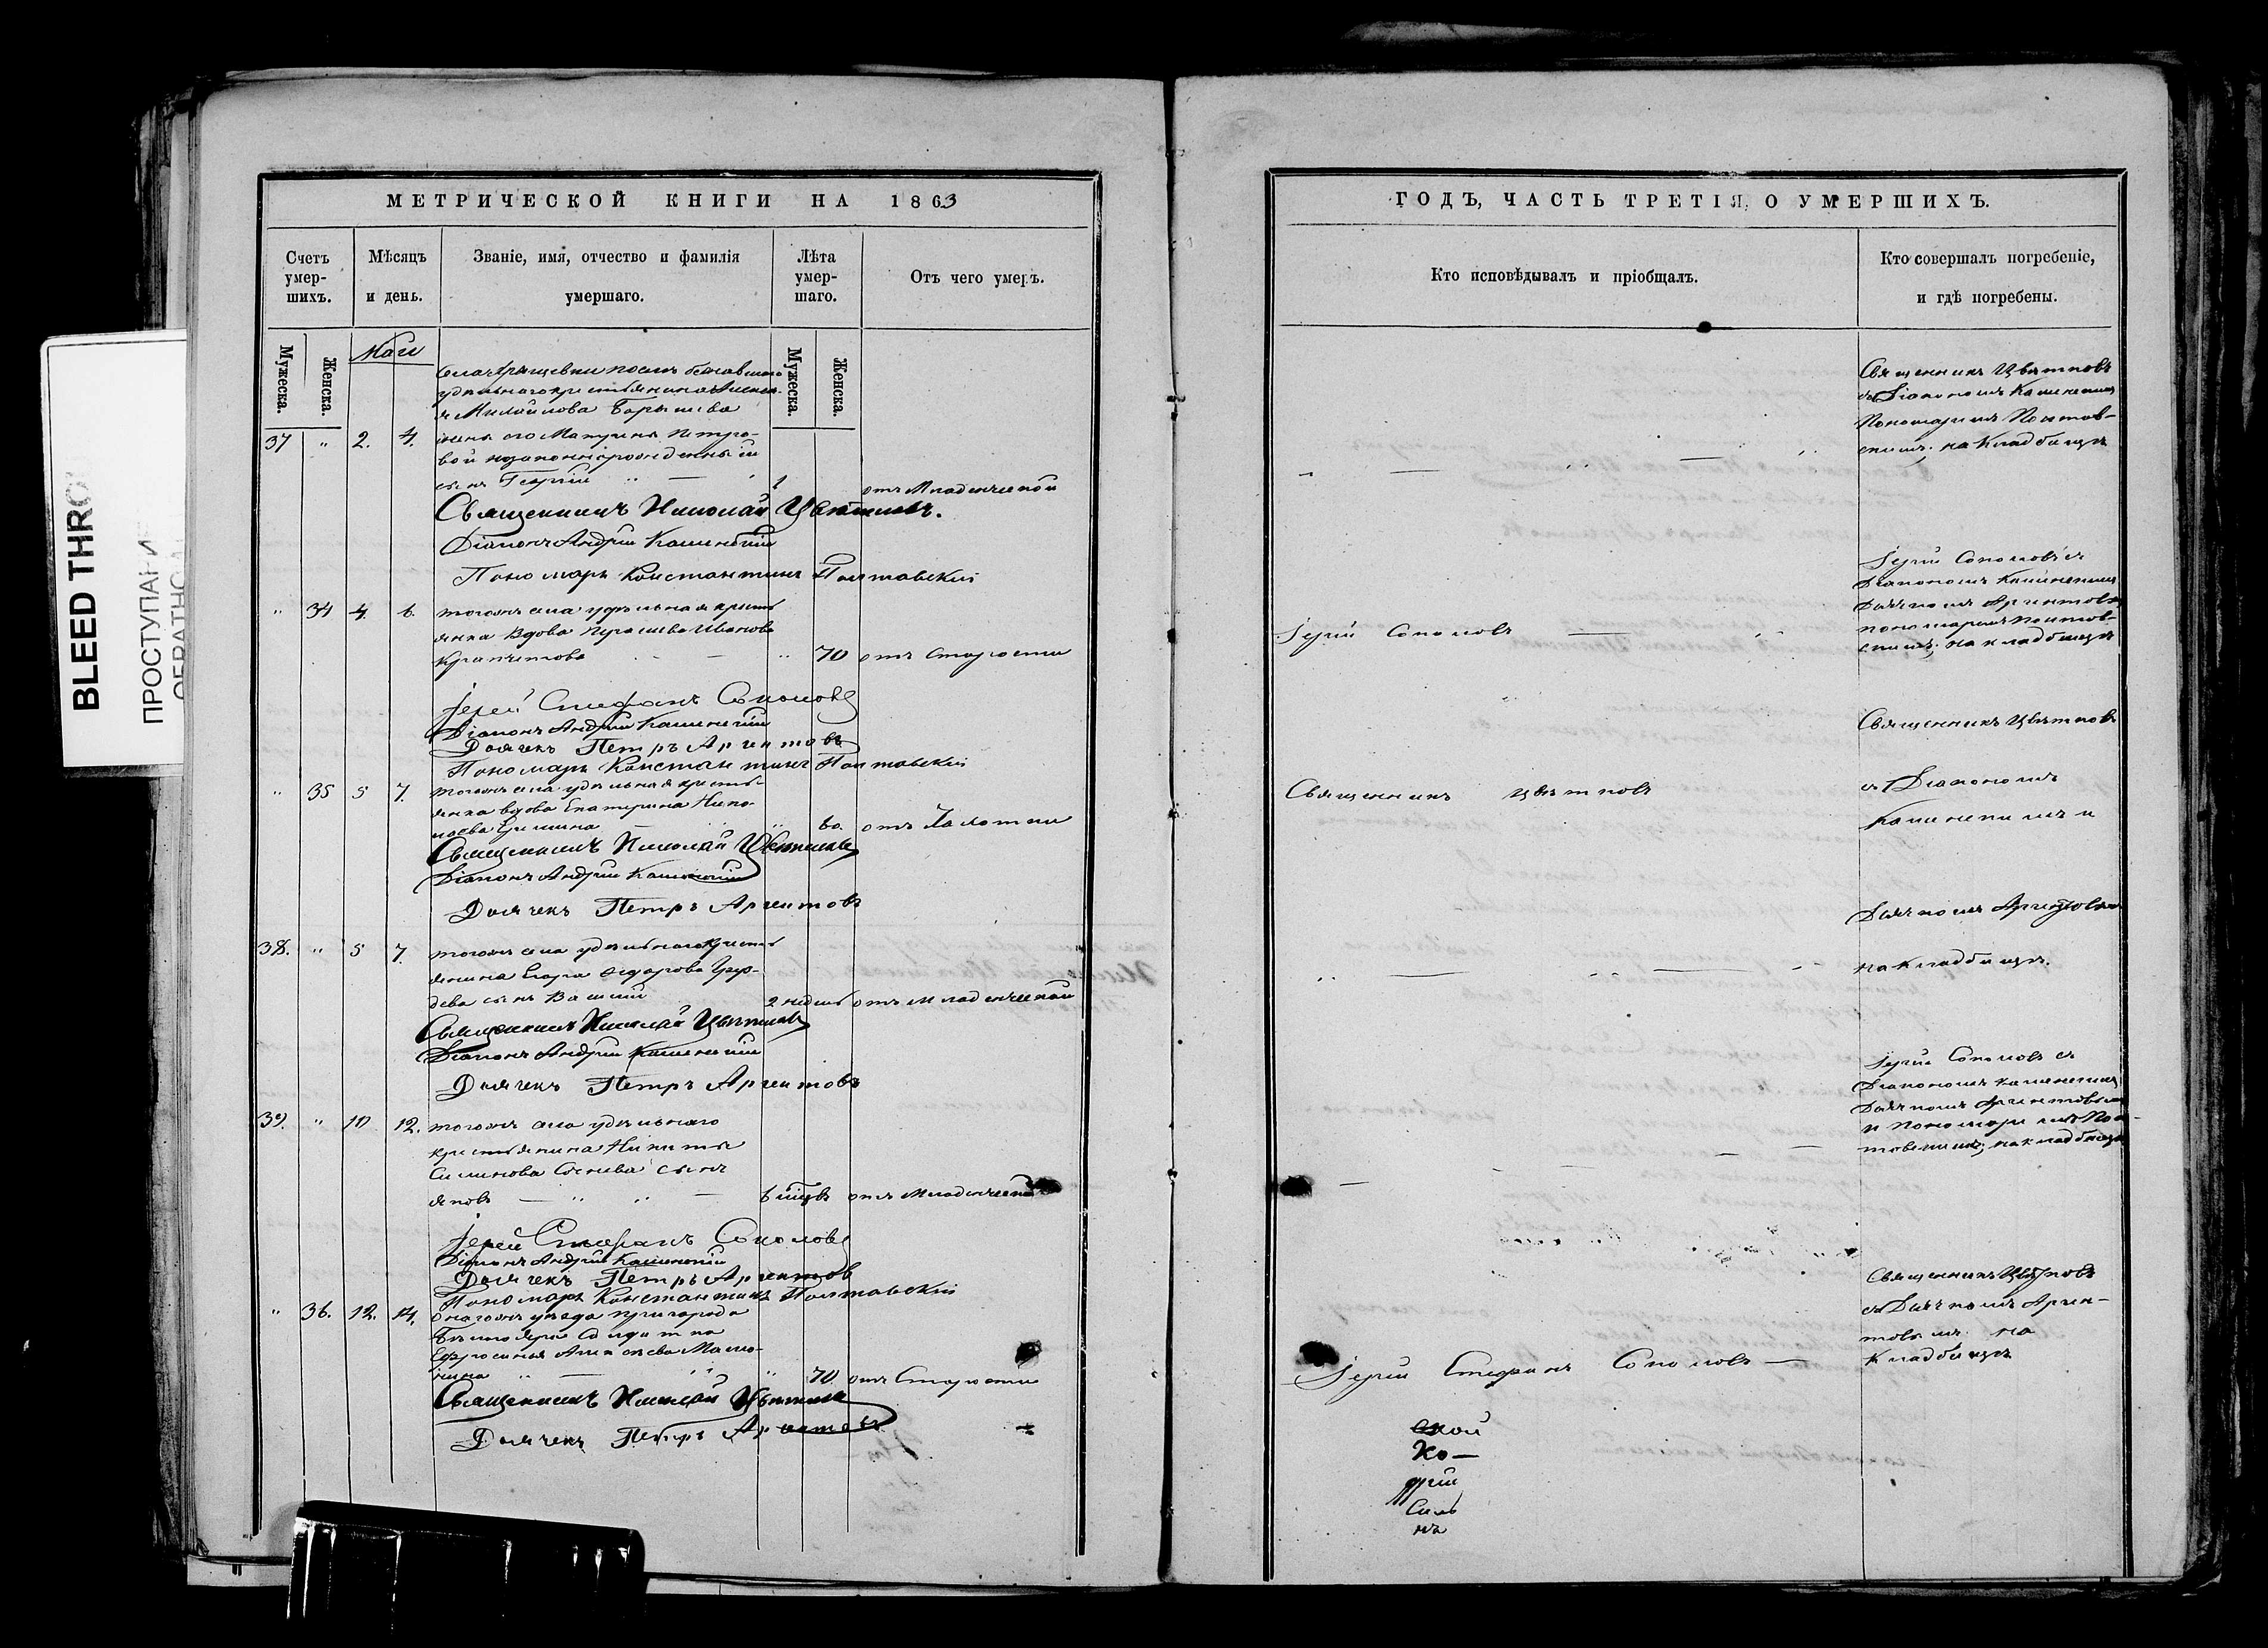 BLEED THRO
ПРОСТУПАНИ
МЕТРИЧЕСКОЙ КНИГИ НА 1863
Счетъ умер-шихъ.
Мѣсяцъ и день.
Званіе, имя, отчество и фамилія умершаго.
Лѣта умер-шаго.
Отъ чего умеръ.
Мужеска.
Женска.
Маи
Мужеска.
Женска.
удѣльнаго крестьянина
Михайлова Барышева
37 " 2. 4. жена его Матрена Петро-
вой незаконнорожденный
сынъ Георгій 1 отъ Младенческой
Священникъ Николай Цвѣтковъ.
Діаконъ Андрей Каменскій
Пономарь Константинъ Полтавскій
" 34 4. 6. тогожъ села удѣльная кресть
янка вдова Иванова
70 отъ Старости
Іерей Стефанъ Соколовъ
Діаконъ Андрей Каменскій
Дьячекъ Петръ Аргентовъ
Пономарь Константинъ Полтавскій
" 35 5 7. тогожъ села удѣльная кресть
янка вдова Екатерина Нико-
лаева 60. отъ Чахотки
Священникъ Николай Цвѣтковъ
Діаконъ Андрей Каменскій
Дьячекъ Петръ Аргентовъ
38. " 5 7. тогожъ села удѣльнаго кресть
янина Егора Федорова
сынъ Василій 2 недель отъ Младенческой
Священникъ Николай Цвѣтковъ
Діаконъ Андрей Каменскій
Дьячекъ Петръ Аргентовъ
39. " 10 12. тогожъ села удѣльнаго
крестьянина Никиты
сынъ
Яковъ 6 мѣцв отъ Младенческой
Іерей Стефанъ Соколовъ
Діаконъ Андрей Каменскій
Дьячекъ Петръ Аргентов
Пономарь Константинъ Полтавскій
" 36. 12. 14. онагожъ уезда пригорода
Бѣлаго Яра Солдатка
Ефросинья Алексѣева
70 отъ Старости
Священникъ Николай Цвѣтковъ
Дьячекъ Петръ Аргентовъ
ГОДЪ, ЧАСТЬ ТРЕТІЯ, О УМЕРШИХЪ.
Кто исповѣдывалъ и пріобщалъ.
Кто совершалъ погребеніе, и гдѣ погребены.
Священникъ Цвѣтковъ
съ Діакономъ Каменскимъ
Пономаремъ Полтав-
скимъ; на кладбищѣ
Іерей Соколовъ съ
Діакономъ Каменскимъ
Дьячкомъ Аргентовымъ
Іерей Соколовъ
пономаремъ Полтав-
скимъ; на кладбищѣ
Священникъ Цвѣтковъ
Священникъ Цвѣтковъ
съ Діакономъ
Каменскимъ и
Дьячкомъ Аргентовым
на кладбищѣ.
Іерей Соколовъ съ
Діакономъ Каменскимъ
Дьячкомъ Аргентовымъ
и Пономаремъ Пол-
тавскимъ; на кладбищѣ
Священникъ Цвѣтковъ
съ Дьячкомъ Арген-
товымъ на
кладбищѣ
Іерей Стефанъ Соколовъ
ской
Ко-
дрей
Силь
нъ